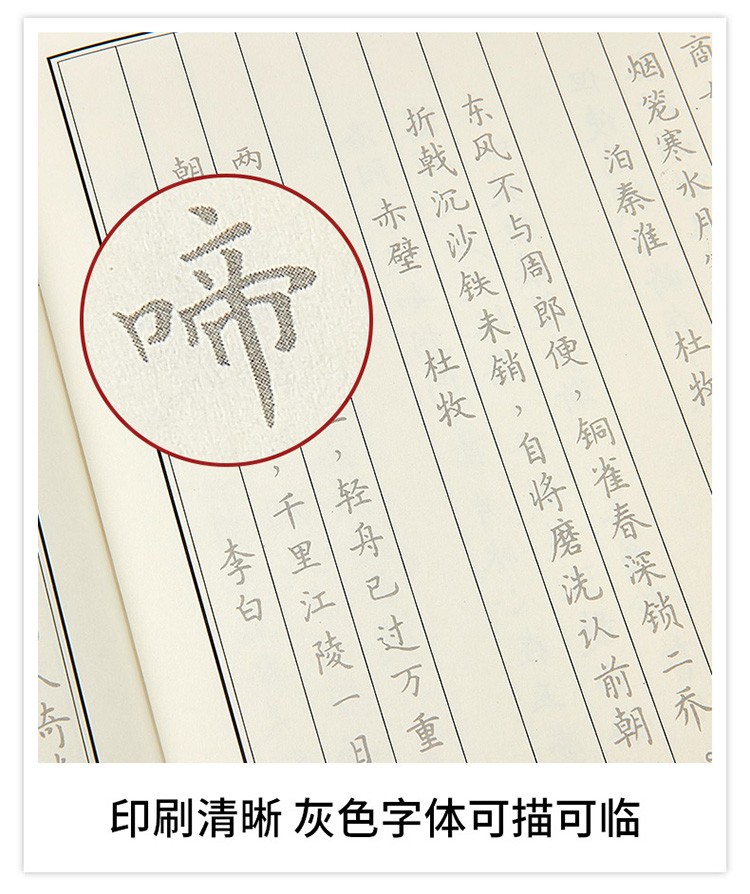 商
烟笼寒水月
泊秦淮 杜牧
东风不与周郎便，铜雀春深锁二乔。
折戟沉沙铁未销，自将磨洗认前朝
赤壁 杜牧
两
，轻舟已过万重
朝
，千里江陵一日
李白
啼
奇
印刷清晰 灰色字体可描可临